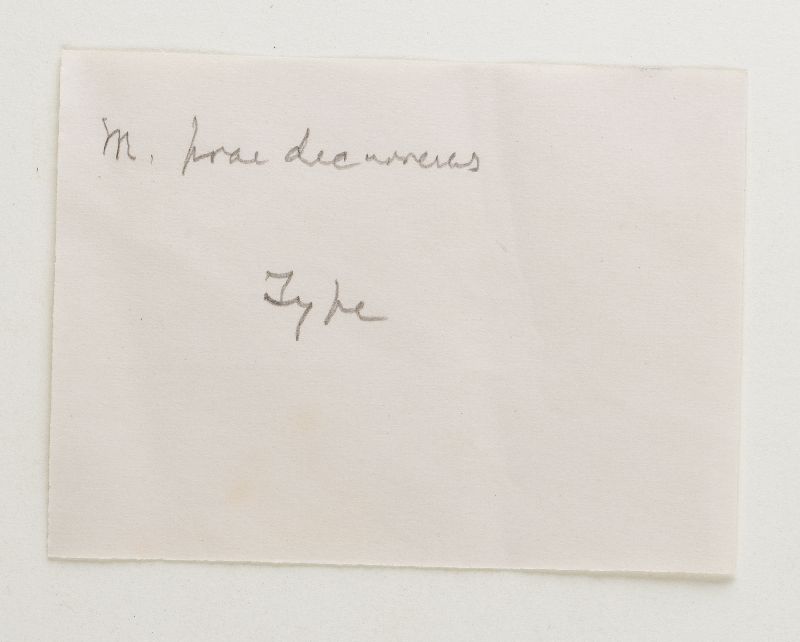 M. praedecurrens
Type